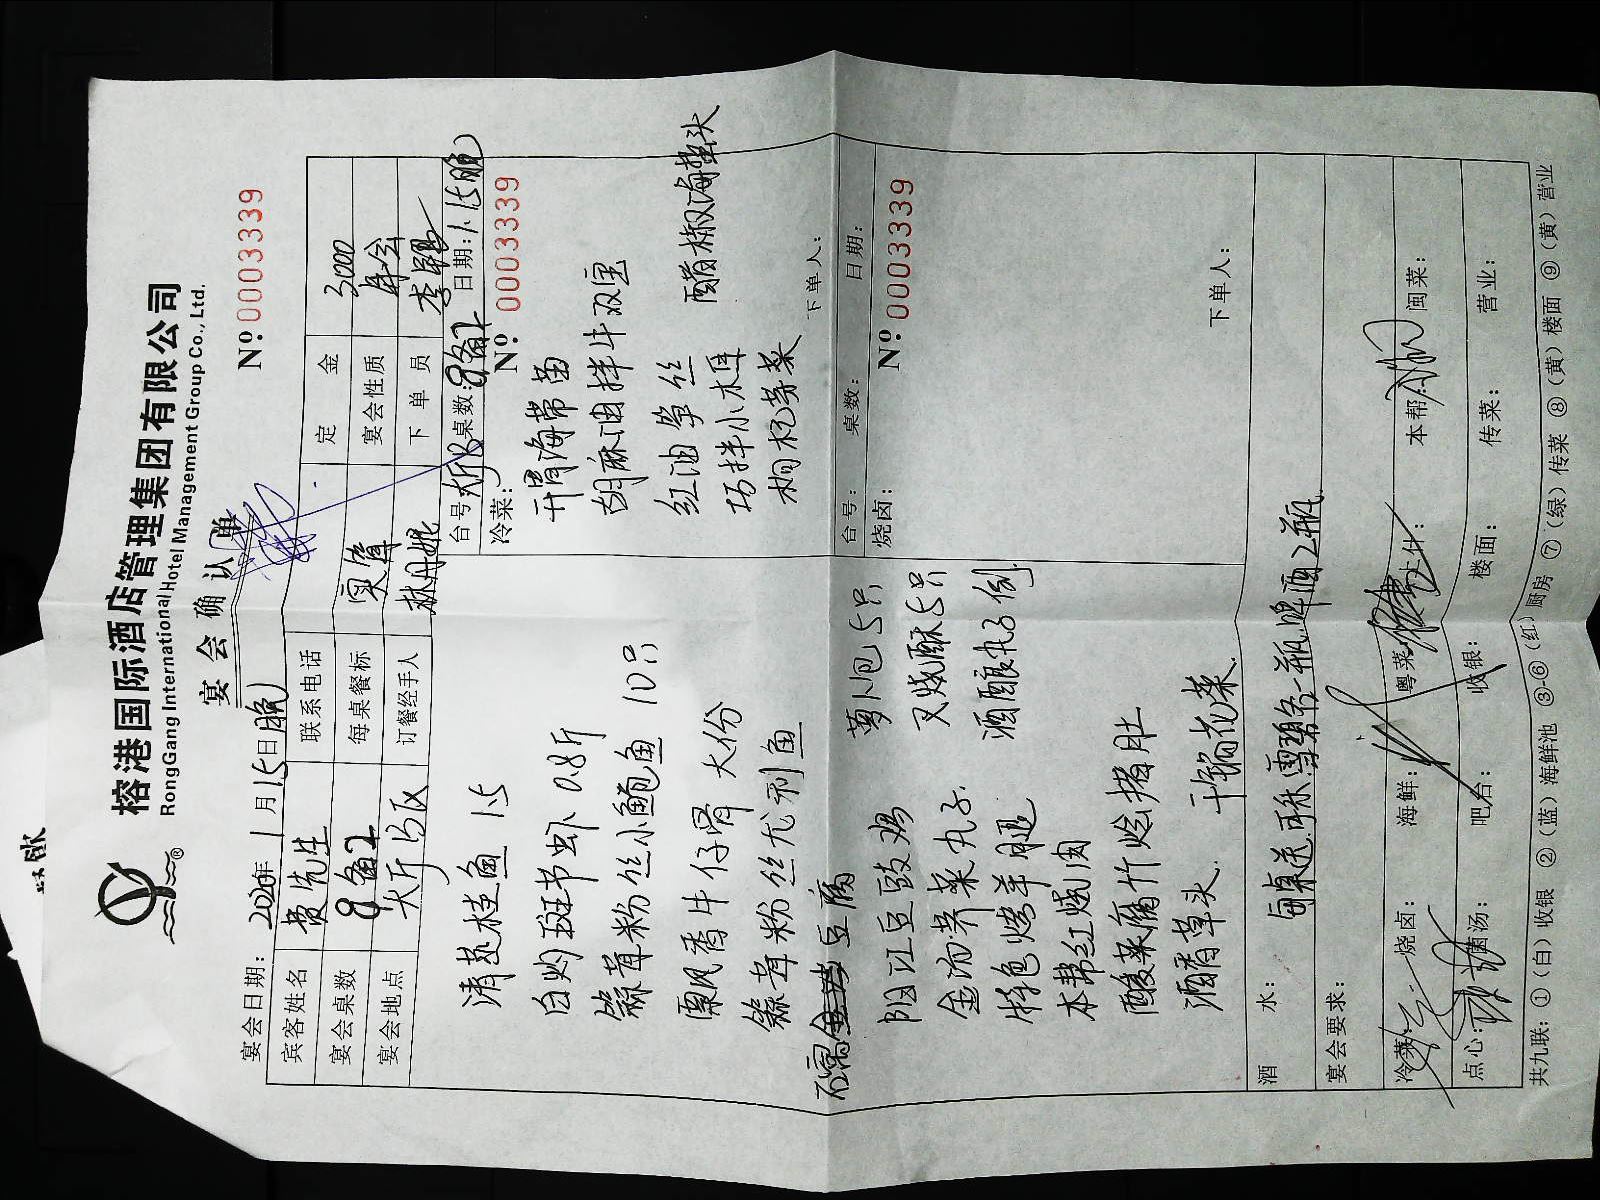 榕港国际酒店管理集团有限公司
RongGang International Hotel Management Group Co., Ltd.
宴会确认单
宴会日期：2020年1月15日晚
№ 0003339
宾客姓名 费先生 联系电话 定金 3000
宴会桌数 9备2 每桌餐标 宴会性质 年会
宴会地点 大厅B区 订餐经手人 林丹妮 下单员
台号：大厅B 桌数：9备2 日期：1.15晚
冷菜：
№ 0003339
开胃海带苗
胡麻油拌牛双宝
红油笋丝
醋椒海蜇头
巧拌小木耳
枸杞芽菜
下单人：
清蒸桂鱼 1.5
白灼斑节虾 0.8斤
蒜茸粉丝小鲍鱼 10只
黑胡椒牛仔骨 大份
蒜茸粉丝龙利鱼
石锅豆腐
阳江豆豉鸡
金汤荠菜丸子
特色烤羊腿
本帮红烧肉
酸菜腐竹烩猪肚
酒香草头
干锅花菜
萝卜包 5只
叉烧酥 5只
酒酿丸子 例
台号： 桌数： 日期：
烧卤：
№ 0003339
下单人：
酒水： 每桌送可乐.雪碧各一瓶.啤酒2瓶
宴会要求：
冷菜： 烧卤： 海鲜： 粤菜： 上什： 本帮： 闽菜：
点心： 菌汤： 吧台： 收银： 楼面： 传菜： 营业：
共九联：①（白）收银 ②（蓝）海鲜池 ③-⑥（红）厨房 ⑦（绿）传菜 ⑧（黄）楼面 ⑨（黄）营业